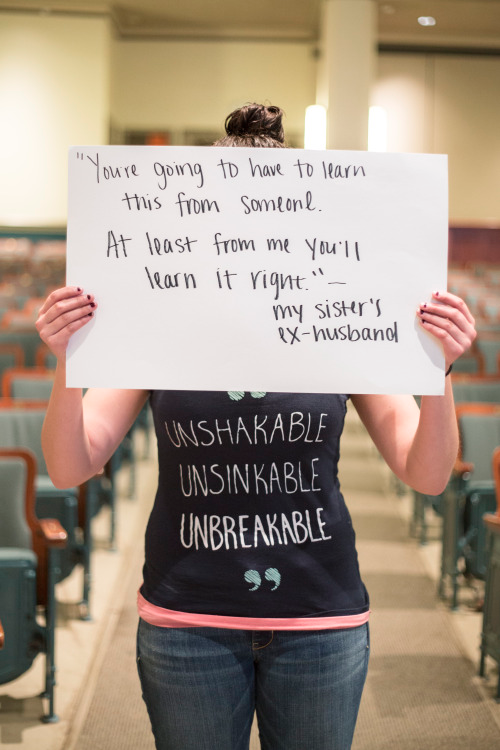 "You're going to have to learn
this from someone.
At least from me you'll
learn it right." —
my sister's
ex-husband
UNSHAKABLE
UNSINKABLE
UNBREAKABLE